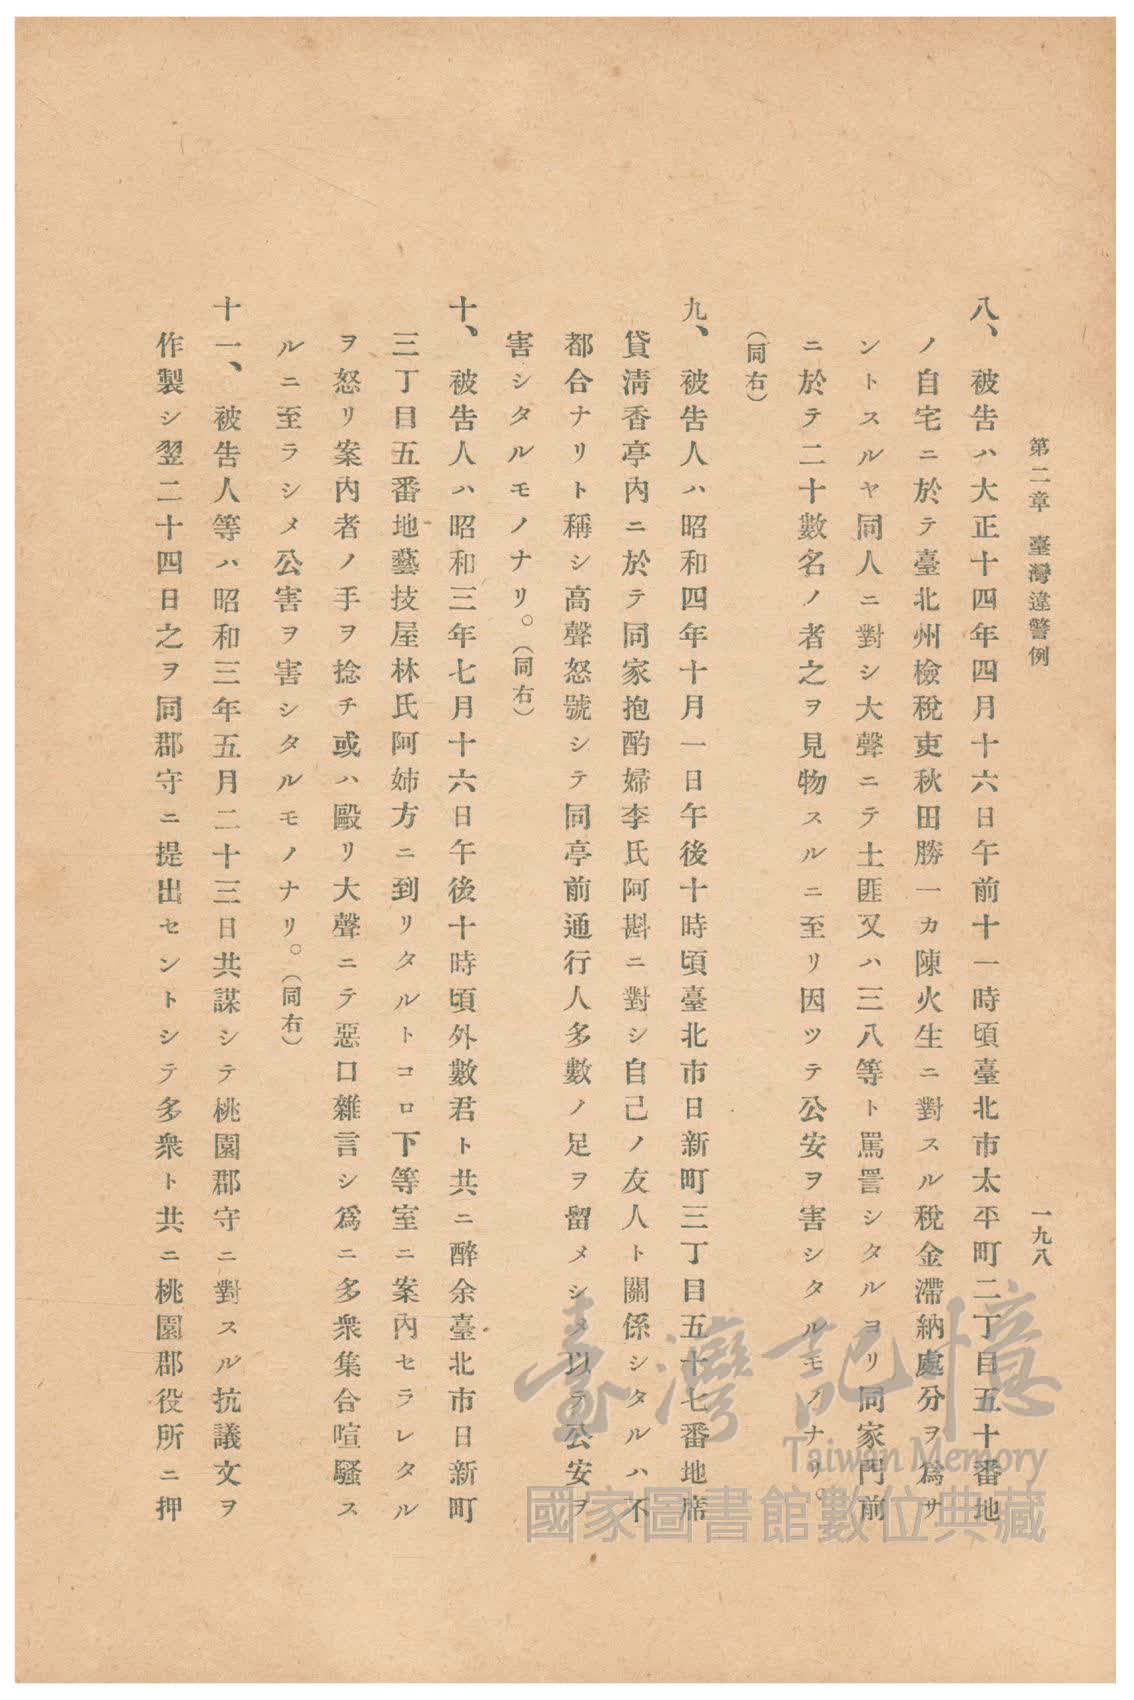 第二章 臺灣違警例 一九八
八、被告ハ大正十四年四月十六日午前十一時頃臺北市太平町二丁目五十番地
ノ自宅ニ於テ臺北州檢稅吏秋田勝一カ陳火生ニ對スル稅金滯納處分ヲ爲サ
ントスルヤ同人ニ對シ大聲ニテ土匪又ハ三八等ト罵詈シタルヨリ同家門前
ニ於テ二十數名ノ者之ヲ見物スルニ至リ因ツテ公安ヲ害シタルモノナリ。
(同右)
九、被告人ハ昭和四年十月一日午後十時頃臺北市日新町三丁目五十七番地席
貸淸香亭內ニ於テ同家抱酌婦李氏阿斟ニ對シ自己ノ友人ト關係シタルハ不
都合ナリト稱シ高聲怒號シテ同亭前通行人多數ノ足ヲ留メシメ以テ公安ヲ
害シタルモノナリ。(同右)
十、被告人ハ昭和三年七月十六日午後十時頃外數君ト共ニ醉余臺北市日新町
三丁目五番地藝技屋林氏阿姉方ニ到リタルトコロ下等室ニ案內セラレタル
ヲ怒リ案內者ノ手ヲ捻チ或ハ毆リ大聲ニテ惡口雜言シ爲ニ多衆集合喧騷ス
ルニ至ラシメ公害ヲ害シタルモノナリ。(同右)
十一、被告人等ハ昭和三年五月二十三日共謀シテ桃園郡守ニ對スル抗議文ヲ
作製シ翌二十四日之ヲ同郡守ニ提出セントシテ多衆ト共ニ桃園郡役所ニ押
臺灣記憶
Taiwan Memory
國家圖書館數位典藏